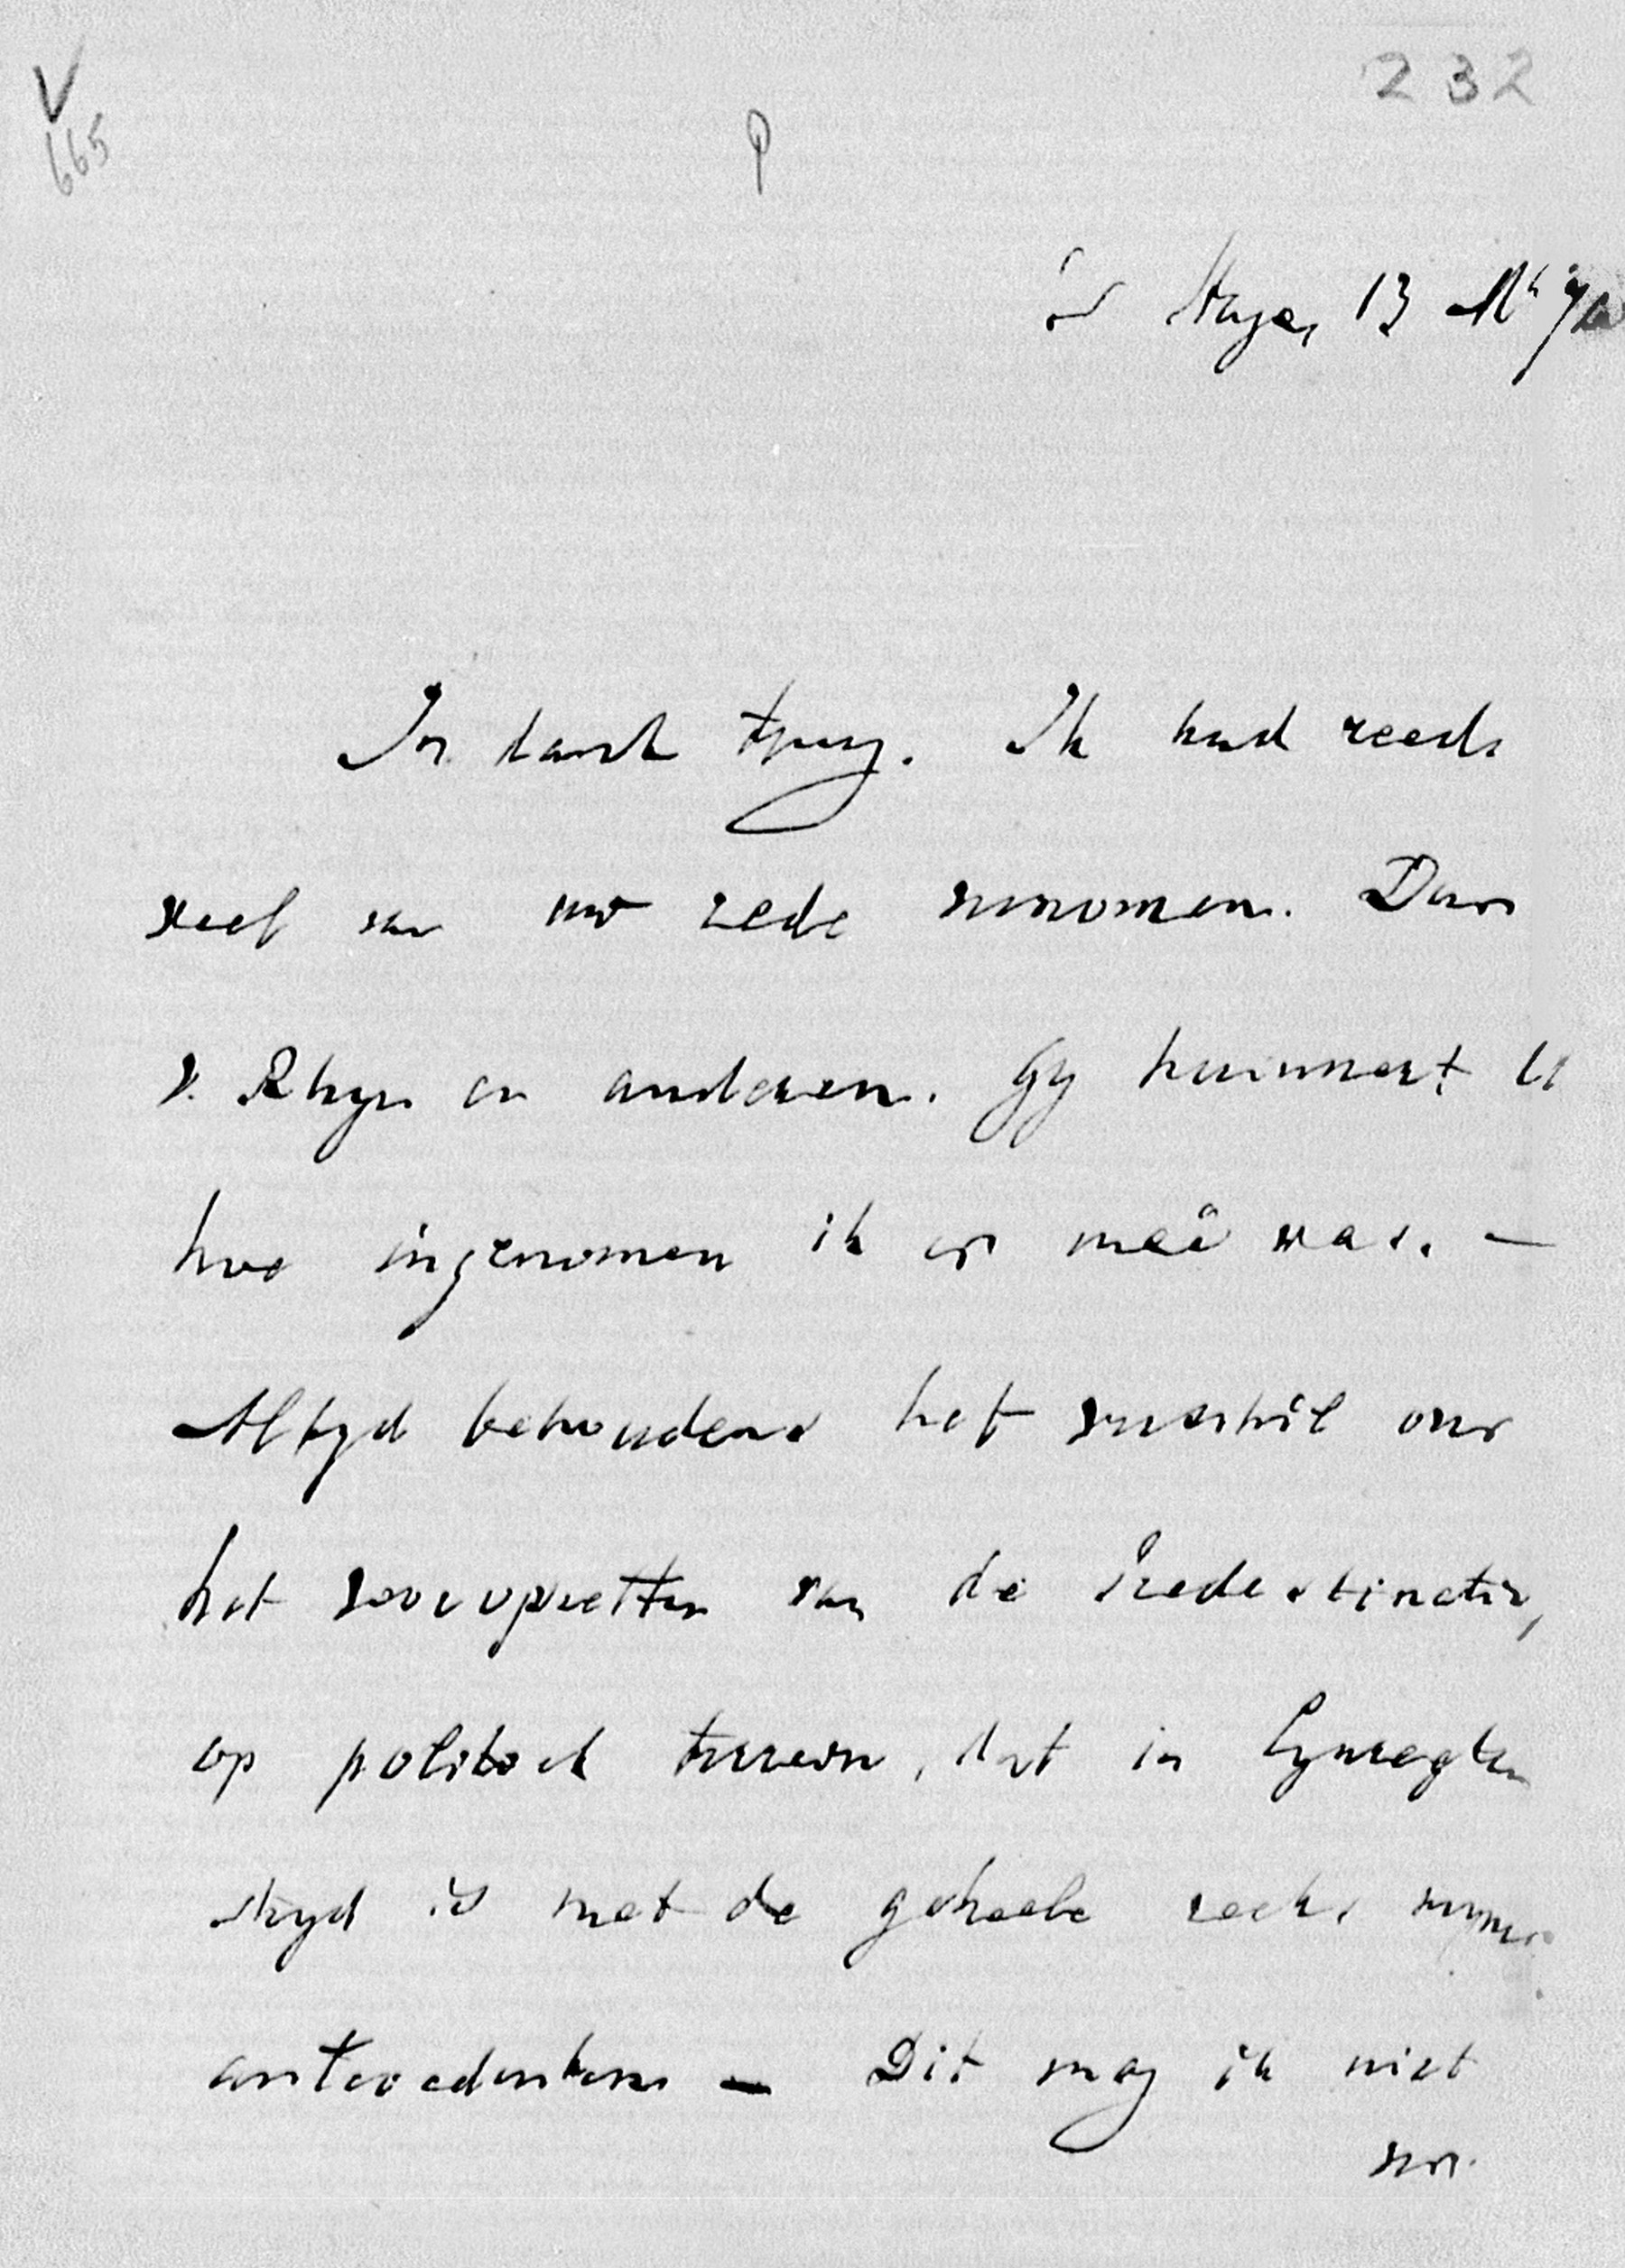 V
665
232
's Hage, 13 Mt 74
In dank terug. Ik had reeds
veel van uw rede vernomen. Door
v. Rhyn en anderen. Gy herinnert U
hoe ingenomen ik er meê was. —
Altyd behoudens het verschil over
het vooropzetten van de Predestinatie,
op politiek terrein, dat in lynregten
stryd is met de geheele reeks myner
antecedenten — Dit mag ik niet
ver-